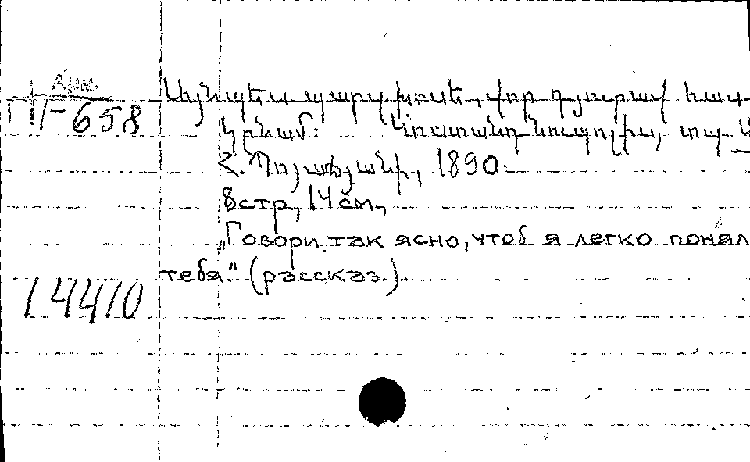 Այնպես պարզ խոսե, վոր դյուրավ հաս-
կընամ: Կոստանդնուպոլիս, տպ.
Հ. Պոյաճյանի, 1890.
8 стр, 14 см,
"Говори так ясно, чтоб я легко понял
тебя" (рассказ)
II-658
14410